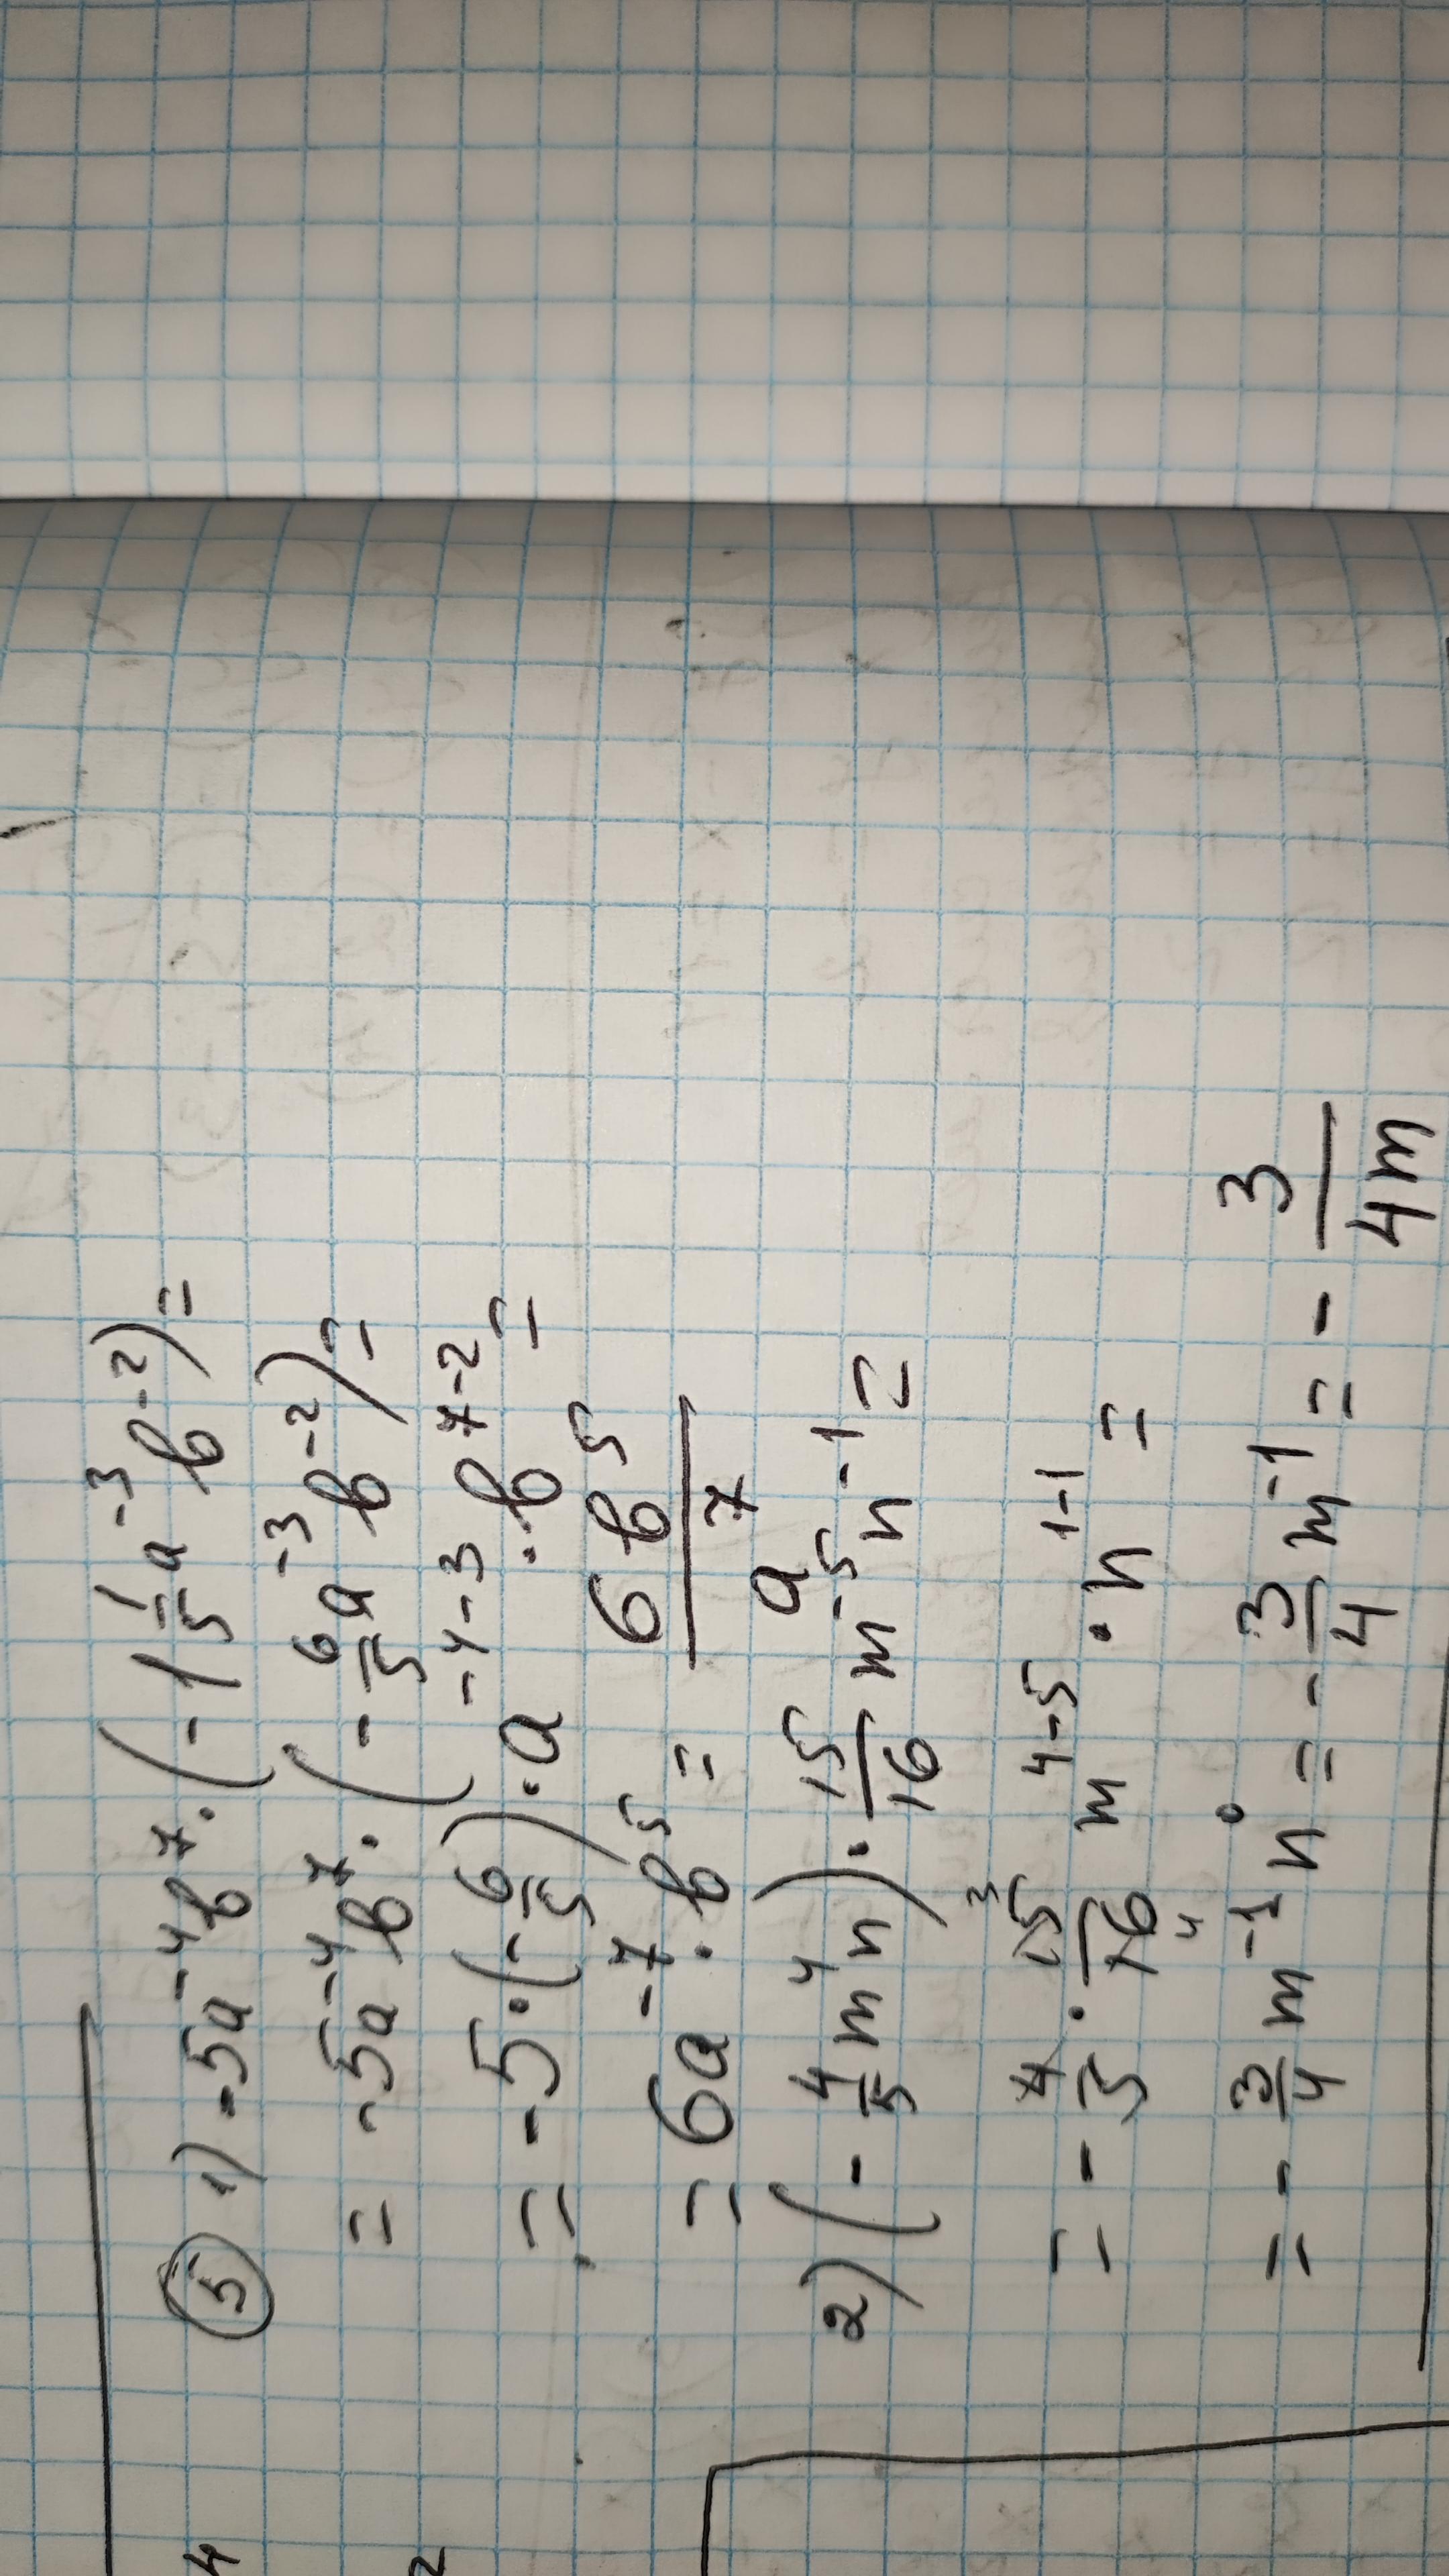 ⑤ 1) -5a⁻⁴b⁷·(-1 1/5 a⁻³b⁻²)=
= -5a⁻⁴b⁷·(-6/5 a⁻³b⁻²)=
= -5·(-6/5)·a⁻⁴⁻³·b⁷⁻²=
= 6a⁻⁷·b⁵ = 6b⁵/a⁷
2) (-4/5 m⁴n)·15/16 m⁻⁵n⁻¹=
= -4/5·15³/16₄ m⁴⁻⁵·n¹⁻¹=
= -3/4 m⁻¹n⁰= -3/4 m⁻¹= -3/4m
4
2